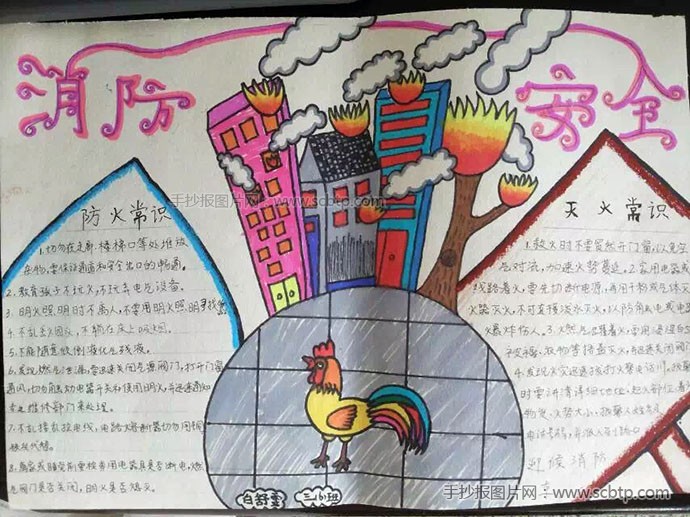 消防安全
手抄报图片网：www.scbtp.com
防火常识
灭火常识
1.切勿在走廊、楼梯口等处堆放
杂物,要保证通道和安全出口的畅通。
2.教育孩子不玩火,不玩弄电气设备。
3.明火照明时不离人,不要用明火照明寻找
4.不乱丢火 不 在床上吸烟。
5.不能随意放倒液化气残液。
6.发现燃气泄漏,要迅速关闭气源阀门,打开门窗
通风,切勿触动电器开关和使用明火,并迅速通知
专业维修部门来处理。
7.不乱接乱拉电线,电路熔断器切勿用铜、
铁丝代替。
8.离家或睡觉前要检查用电器具是否断电,燃
气阀门是否关闭,明火是否熄灭。
1.救火时不要贸然开门窗,以免空
气对流,加速火势蔓延。2.家用电器或
线路着火,要先切断电源,再用干粉或气体灭
火器灭火,不可直接泼水灭火,以防触电或电器
爆炸伤人。3.燃气 着 用浸湿的
衣被 等捂盖灭火,并迅速关闭阀门
4.发现火灾迅速拨打火警电话119。报警
时要讲清详细地址、起火部位、着
物质、火势大小、报警人姓名及
电话号码,并派人在路口
迎候消防
白舒雪
三(6)班
手抄报图片网：www.scbtp.com